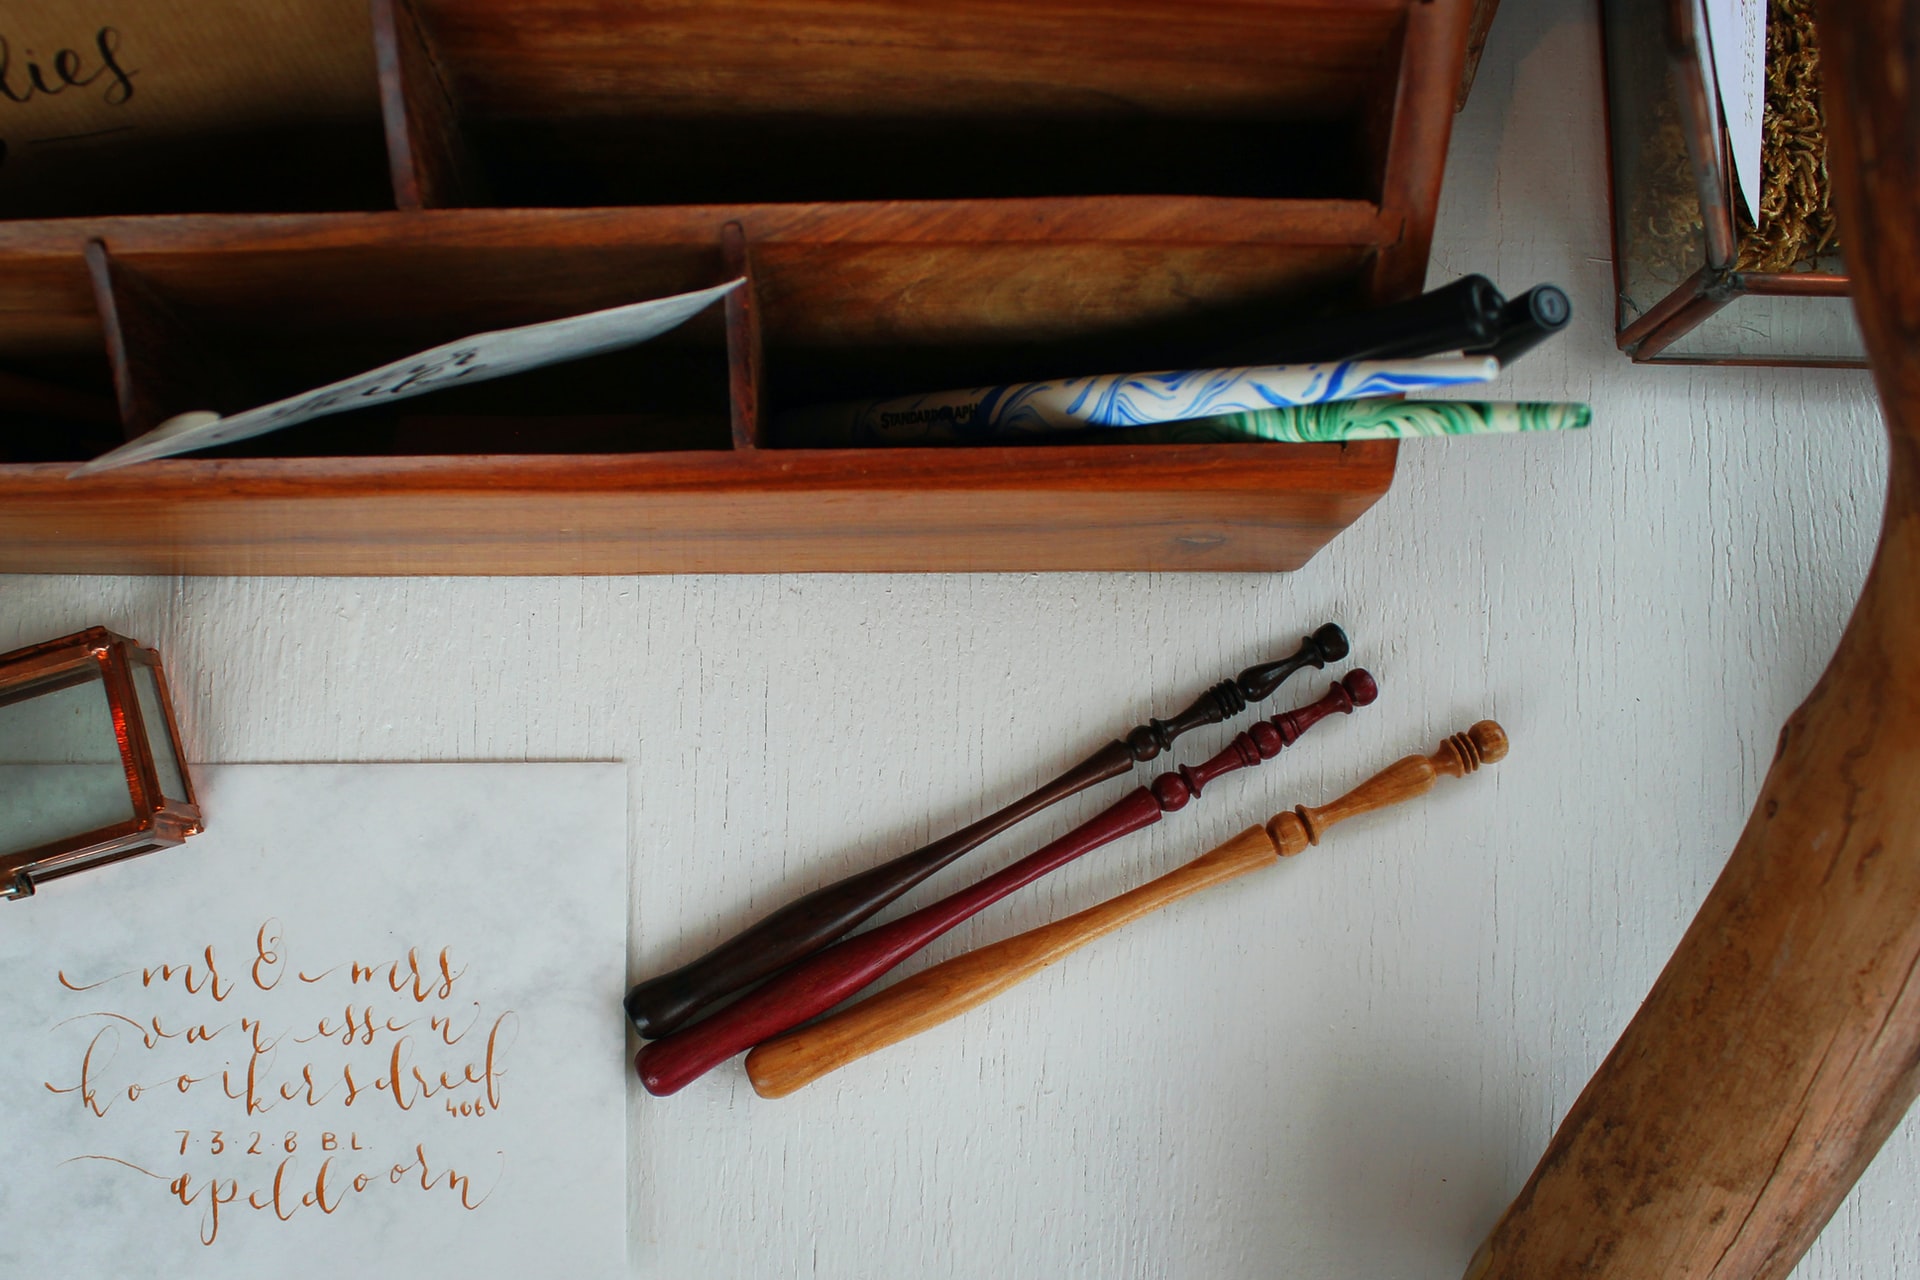 lies
STANDARDGRAPH
mr & mrs
van essen
kooikersdreef
406
7·3·2·8 B.L.
apeldoorn